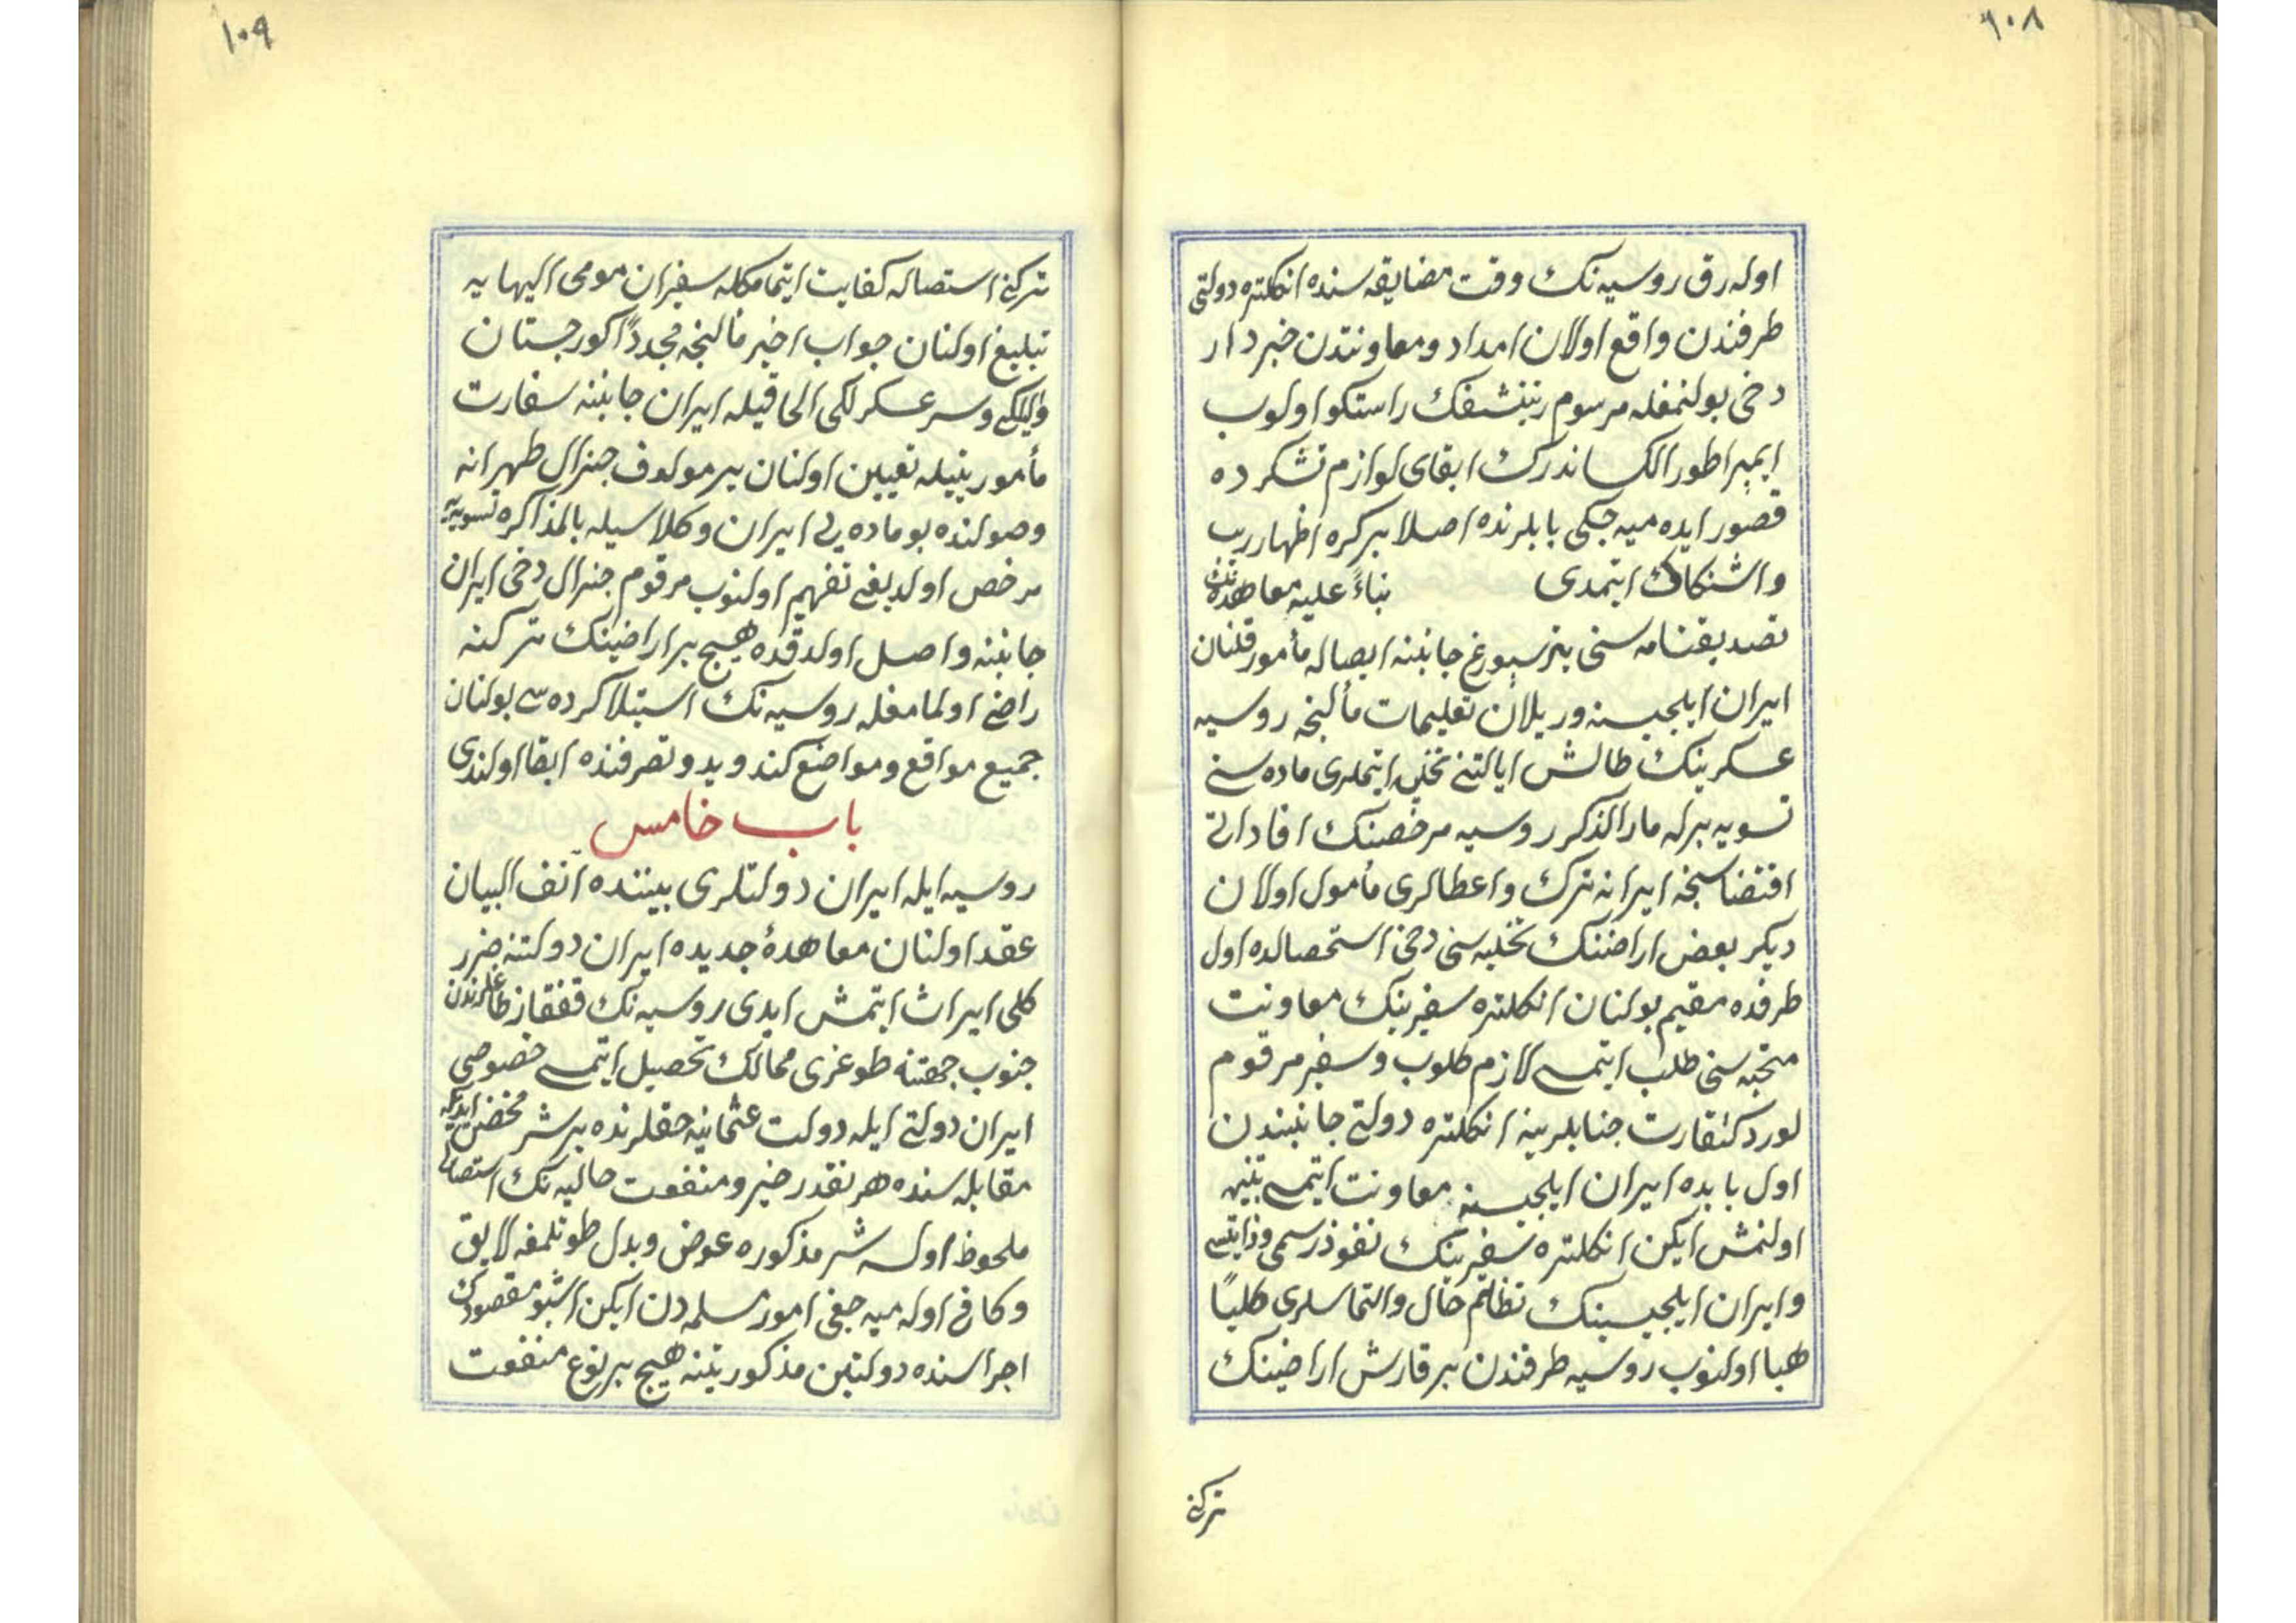 ١٠٨
اوله رق روسیه نك وقت مضایقه سنده انكلتره دولتی
طرفندن واقع اولان امداد ومعاونتدن خبردار
دخی بولنمغله مرسوم راستكو اولوب
ایمپراطور الكساندرك ابقای لوازم تشكرده
قصور ایده میه جكی بابلرنده اصلا بركره اظهار ریب
واشتكاك ایتمدی بناءً علیه معاهده نك
تصدیقنامه سنی پترسبورغ جانبنه ایصاله مأمور قلنان
ایران ایلچیسنه ویریلان تعلیمات مألنجه روسیه
عسكرینك طالش ایالتنی تخلیه ایتملری ماده سنی
تسویه برله مارالذكر روسیه مرخصنك افاداتی
اقتضاسنجه ایرانه ترك واعطالری مأمول اولان
دیكر بعض اراضینك تخلیه سنی دخی استحصالده اول
طرفده مقیم بولنان انكلتره سفیرینك معاونت
متحبه سنی طلب ایتمسی لازم كلوب وسفیر مرقوم
لورد كثقارت جنابلرینه انكلتره دولتی جانبندن
اول بابده ایران ایلچیسنه معاونت ایتمسی تنبیه
اولنمش ایكن انكلتره سفیرینك نفوذ رسمی وذاتیسی
وایران ایلچیسینك تظلم حال والتماسلری كلیاً
هبا اولنوب روسیه طرفندن برقارش اراضینك
تركنی
١٠٩
تركنی استصاله كفایت ایتمامكله سفیران مومی الیهایه
تبلیغ اولنان جواب اخیر مألنجه مجدداً كورجستان
والیلكی وسرعسكرلكی الحاقیله ایران جانبنه سفارت
مأموریتیله تعیین اولنان یرمولوف جنرال طهرانه
وصولنده بو ماده یی ایران وكلاسیله بالمذاكره تسویه یه
مرخص اولدیغی تفهیم اولنوب مرقوم جنرال دخی ایران
جانبنه واصل اولدقده هیچ براراضینك تركنه
راضی اولمامغله روسیه نك استیلاكرده سی بولنان
جمیع مواقع ومواضع كندو ید وتصرفنده ابقا اولندی
باب خامس
روسیه ایله ایران دولتلری بیننده آنف البیان
عقد اولنان معاهدهٔ جدیده ایران دولتنه ضرر
كلی ایراث ایتمش ایدی روسیه نك قفقاز طاغلرندن
جنوب جهتنه طوغری ممالك تحصیل ایتمسی خصوصی
ایران دولتی ایله دولت عثمانیه حقلرنده بر شر محض ایدیكه
مقابله سنده هرنقدر خیر ومنفعت حالیه نك استصالی
ملحوظ اولسه شر مذكوره عوض وبدل طوتلمغه لایق
وكافی اوله میه جغی امور مسلمه دن ایكن اشبو مقصودك
اجراسنده دولتین مذكورتینه هیچ برنوع منفعت